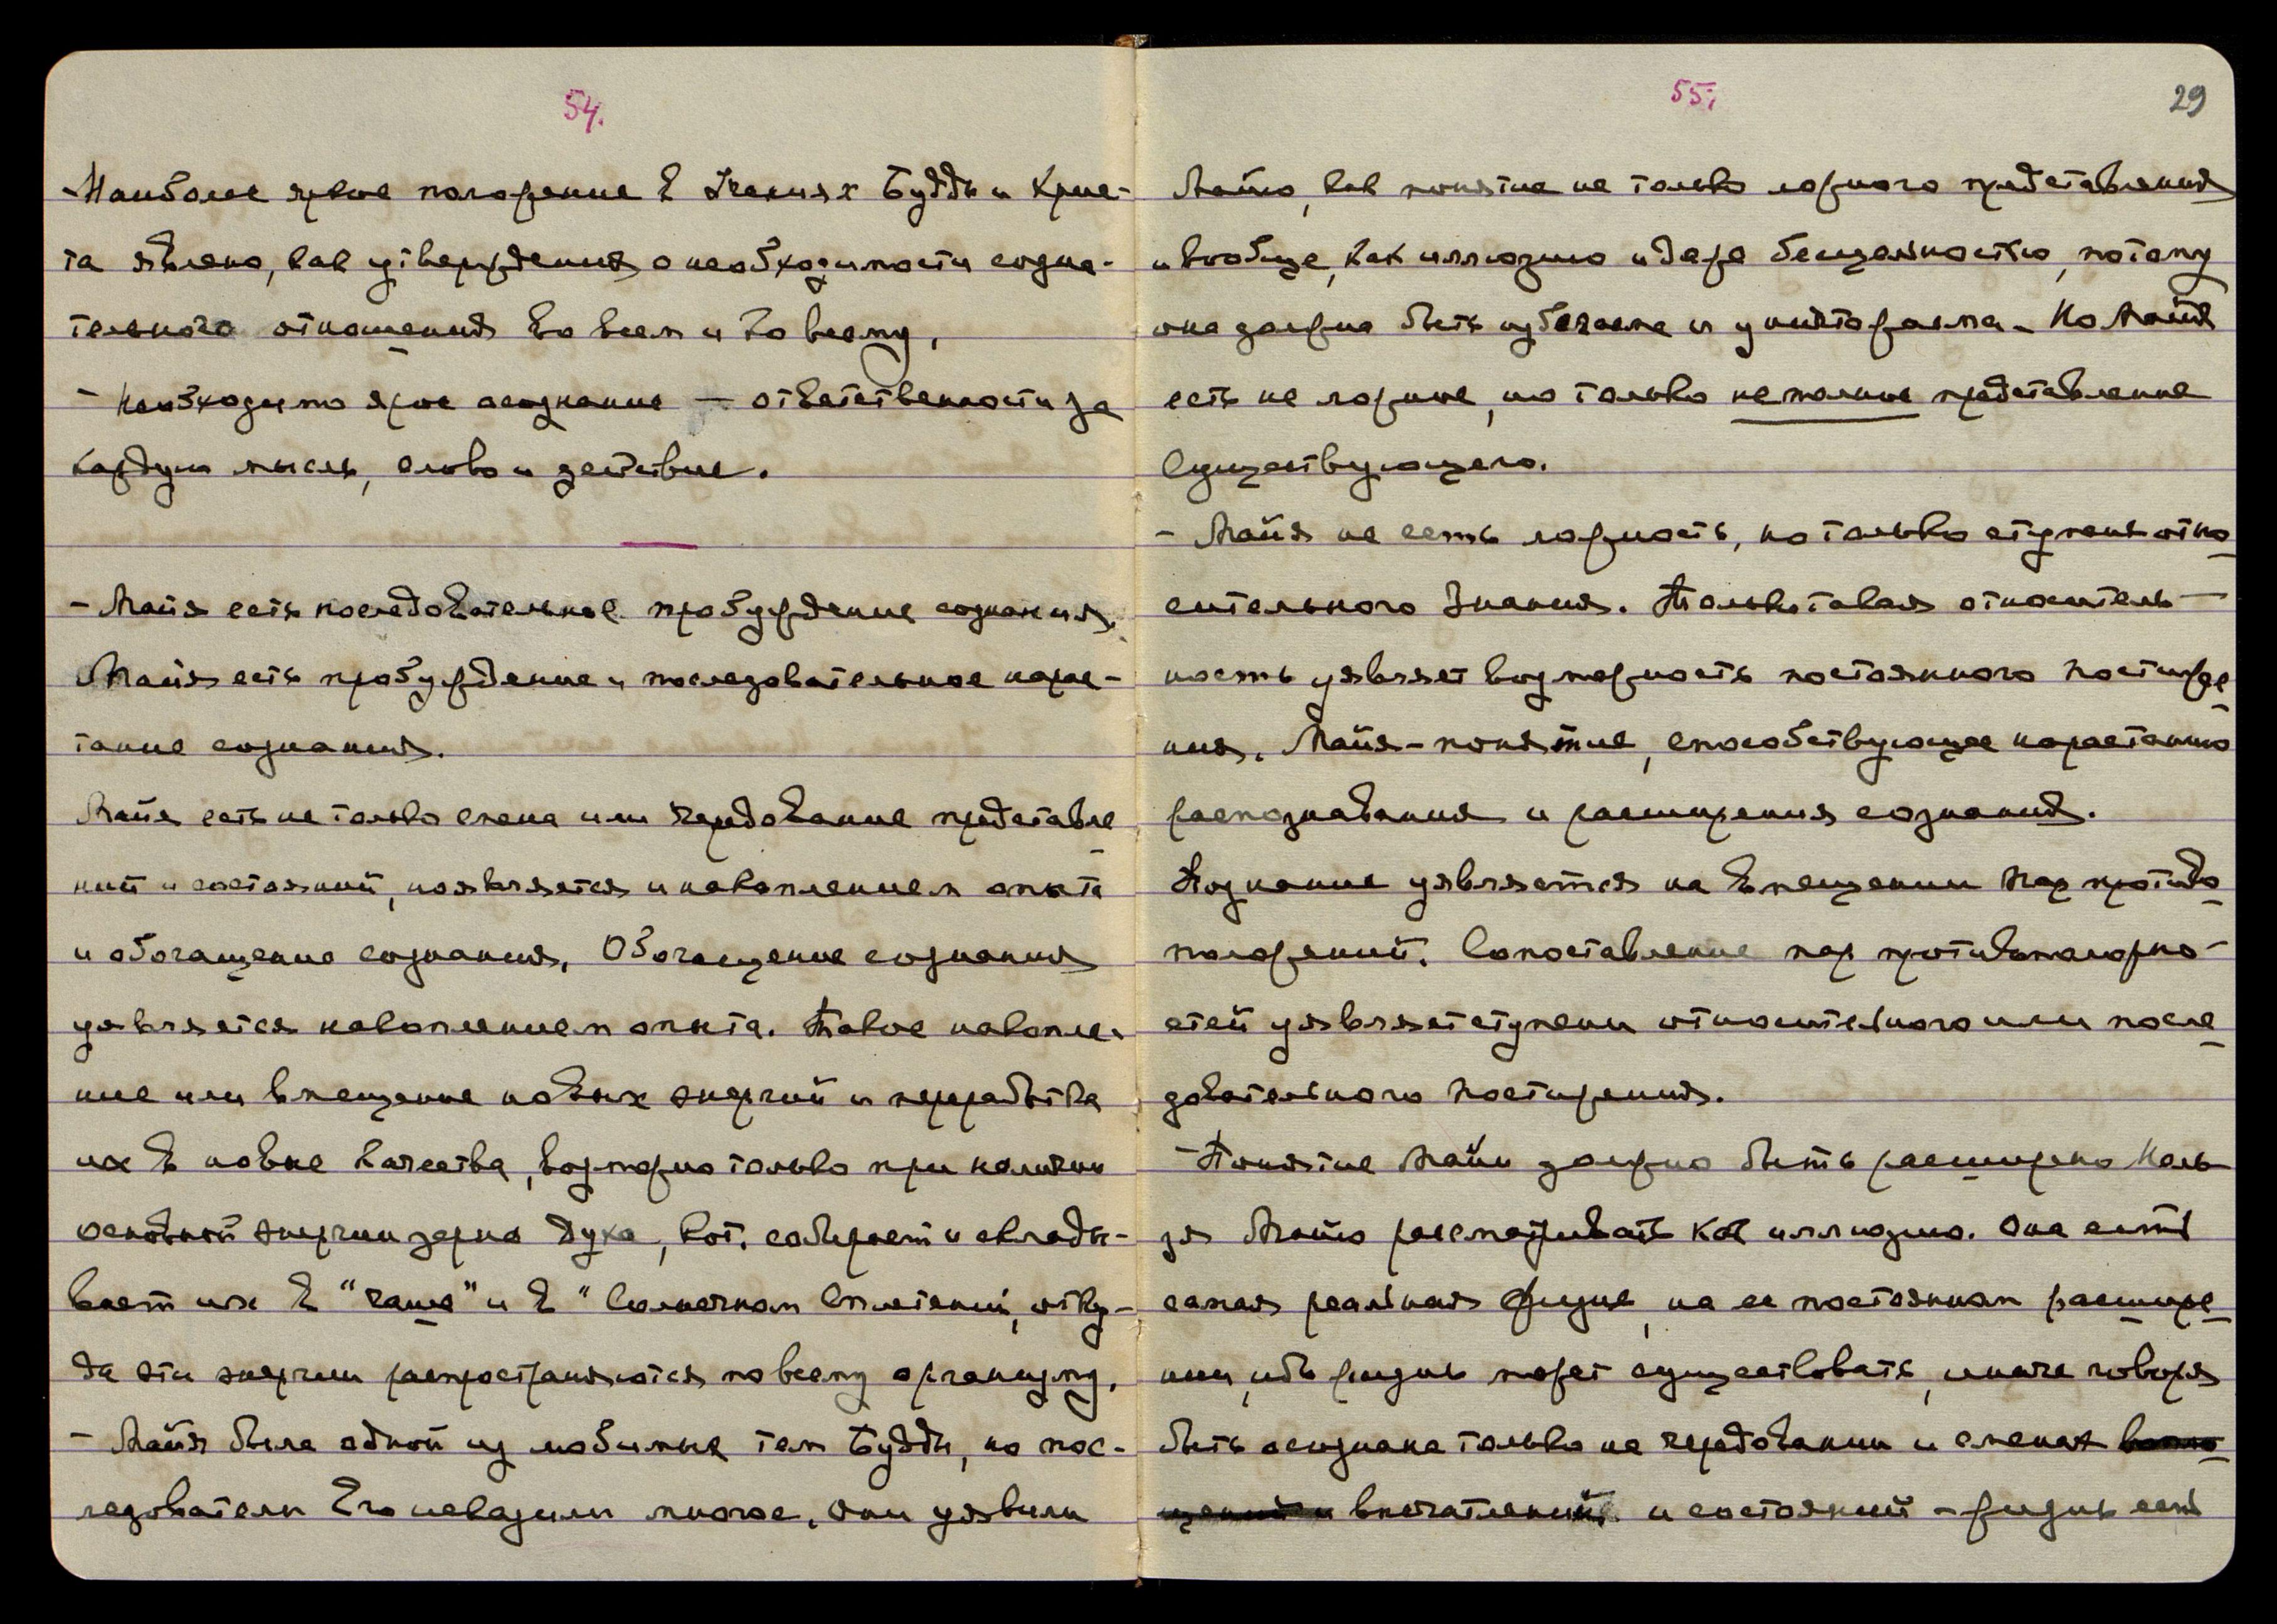 54.
- Наиболее яркое положение в Учениях Будды и Хрис-
та явлено, как утверждения о необходимости созна-
тельного отношения во всем и ко всему,
- Необходимо ярое осознание — ответственности за
каждую мысль, слово и действие.
- Майя есть последовательное пробуждение сознания,
Майя есть пробуждение и последовательное нарас-
тание сознания.
Майя есть не только смена или чередование представле
ний и состояний, но является и накоплением опыта
и обогащение сознания, Обогащение сознания
уявляется накоплением опыта. Такое накопле-
ние или вмещение новых энергий и переработка
их в новые качества, возможно только при наличии
основной энергии зерна духа, кот. собирает и склады-
вает их в "чаше" и в "Солнечном Сплетении, отку-
да эти энергии распространяются по всему организму,
- Майя была одной из любимых тем Будды, но пос-
ледователи Его исказили многое, они уявили
55. 29
Майю, как понятие не только ложного представления
и вообще, как иллюзию и даже бесцельностью, потому
она должна быть избегаема и уничтожаема - Но Майя
есть не ложное, но только неполное представление
Существующего.
- Майя не есть ложность, но только ступень отно
сительного Знания. Только такая относитель-
ность уявляет возможность постоянного постиже
ния, Майя - понятие, способствующее нарастанию
распознавания и расширения сознания.
Познание уявляется на вмещении пар противо
положений. Сопоставление пар противоположно-
стей уявляет ступени относительного или после
довательного постижения.
- Понятие Майи должно быть расширено Нель
зя Майю рассматривать как иллюзию. Она есть
самая реальная Жизнь, на ее постоянном расшире
нии, ибо жизнь может существовать, иначе говоря
быть осознана только на чередовании и сменах
впечатлений и состояний - жизнь есть